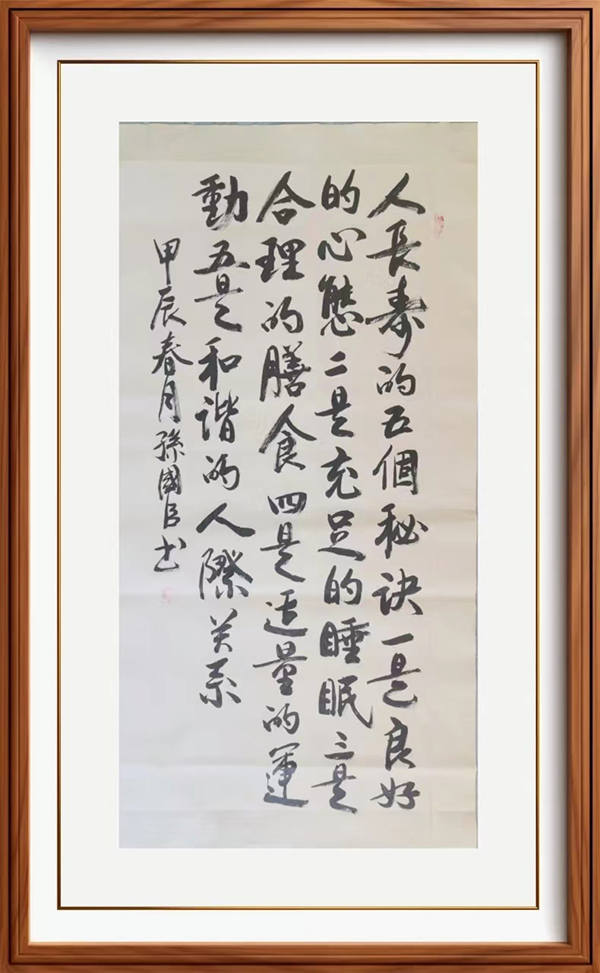 人長壽的五個秘訣一是良好
的心態二是充足的睡眠三是
合理的膳食四是适量的運
動五是和谐的人際关系
甲辰春月孫國良书